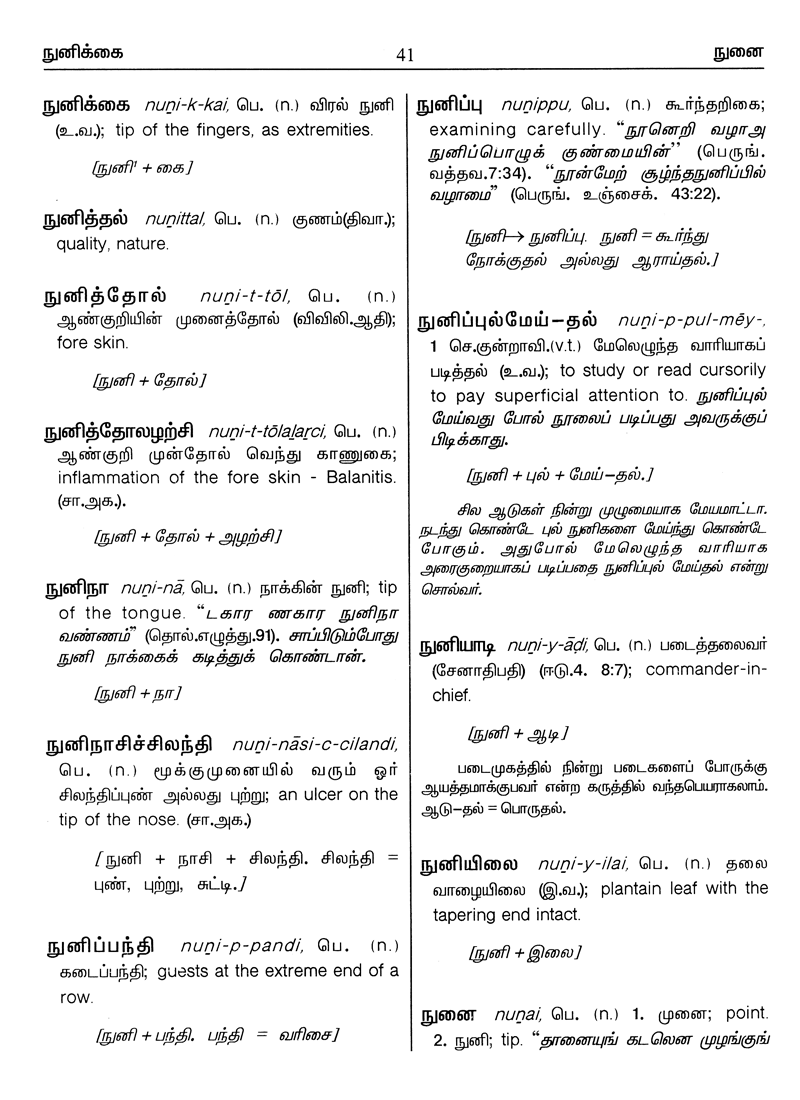 நுனிக்கை 41 நுனை
நுனிக்கை nuṉi-k-kai, பெ. (n.) விரல் நுனி
(உ.வ.); tip of the fingers, as extremities.
[நுனி¹ + கை]
நுனித்தல் nuṉittal, பெ. (n.) குணம்(திவா.);
quality, nature.
நுனித்தோல் nuṉi-t-tōl, பெ. (n.)
ஆண்குறியின் முனைத்தோல் (விவிலி.ஆதி);
fore skin.
[நுனி + தோல்]
நுனித்தோலழற்சி nuṉi-t-tōlaḻaṟci, பெ. (n.)
ஆண்குறி முன்தோல் வெந்து காணுகை;
inflammation of the fore skin - Balanitis.
(சா.அக.).
[நுனி + தோல் + அழற்சி]
நுனிநா nuṉi-nā, பெ. (n.) நாக்கின் நுனி; tip
of the tongue. “டகார ணகார நுனிநா
வண்ணம்” (தொல்.எழுத்து.91). சாப்பிடும்போது
நுனி நாக்கைக் கடித்துக் கொண்டான்.
[நுனி + நா]
நுனிநாசிச்சிலந்தி nuṉi-nāsi-c-cilandi,
பெ. (n.) மூக்குமுனையில் வரும் ஓர்
சிலந்திப்புண் அல்லது புற்று; an ulcer on the
tip of the nose. (சா.அக.)
[நுனி + நாசி + சிலந்தி. சிலந்தி =
புண், புற்று, சுட்டி.]
நுனிப்பந்தி nuṉi-p-pandi, பெ. (n.)
கடைப்பந்தி; guests at the extreme end of a
row.
[நுனி + பந்தி. பந்தி = வரிசை]
நுனிப்பு nuṉippu, பெ. (n.) கூர்ந்தறிகை;
examining carefully. “நூனெறி வழாஅ
நுனிப்பொழுக் குண்மையின்’’ (பெருங்.
வத்தவ.7:34). “நூன்மேற் சூழ்ந்தநுனிப்பில்
வழாமை” (பெருங். உஞ்சைக். 43:22).
[நுனி→ நுனிப்பு. நுனி = கூர்ந்து
நோக்குதல் அல்லது ஆராய்தல்.]
நுனிப்புல்மேய்–தல் nuṉi-p-pul-mēy-,
1 செ.குன்றாவி.(v.t.) மேலெழுந்த வாரியாகப்
படித்தல் (உ.வ.); to study or read cursorily
to pay superficial attention to. நுனிப்புல்
மேய்வது போல் நூலைப் படிப்பது அவருக்குப்
பிடிக்காது.
[நுனி + புல் + மேய்–தல்.]
சில ஆடுகள் நின்று முழுமையாக மேயமாட்டா.
நடந்து கொண்டே புல் நுனிகளை மேய்ந்து கொண்டே
போகும். அதுபோல் மேலெழுந்த வாரியாக
அரைகுறையாகப் படிப்பதை நுனிப்புல் மேய்தல் என்று
சொல்வர்.
நுனியாடி nuṉi-y-āḍi, பெ. (n.) படைத்தலைவர்
(சேனாதிபதி) (ஈடு.4. 8:7); commander-in-
chief.
[நுனி + ஆடி]
படைமுகத்தில் நின்று படைகளைப் போருக்கு
ஆயத்தமாக்குபவர் என்ற கருத்தில் வந்தபெயராகலாம்.
ஆடு–தல் = பொருதல்.
நுனியிலை nuṉi-y-ilai, பெ. (n.) தலை
வாழையிலை (இ.வ.); plantain leaf with the
tapering end intact.
[நுனி + இலை]
நுனை nuṉai, பெ. (n.) 1. முனை; point.
2. நுனி; tip. “தானையுங் கடலென முழங்குங்